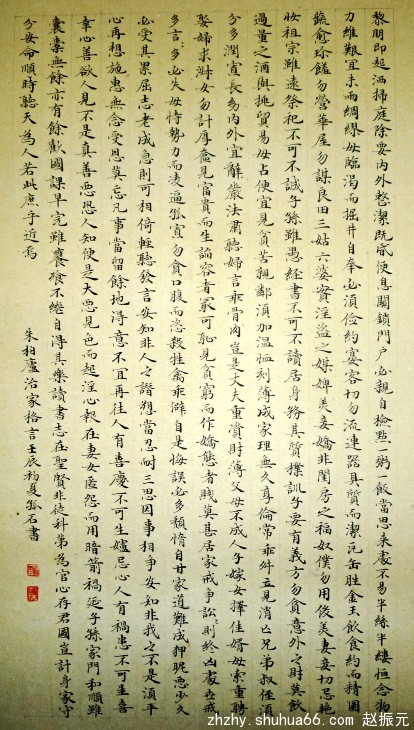 黎明即起洒掃庭除要内外整潔既昏便息關鎖門户必親自檢點一粥一飯當思来處不易半絲半縷恒念物
力維艱宜未雨綢繆毋臨渴而掘井自奉必須儉約宴客切勿流連器具質而潔瓦缶勝金玉飲食約而精園
蔬愈珍饈勿營華屋勿謀良田三姑六婆實淫盜之媒婢美妾嬌非閨房之福奴僕勿用俊美妻妾切忌艷
妝祖宗雖遠祭祀不可不誠子孫雖愚經書不可不讀居身務其質樸訓子要有義方勿貪意外之財莫飲
過量之酒與挑貿易毋占便宜見貧苦親鄰須加温恤刻薄成家理無久享倫常乖舛立見消亡兄弟叔侄須
分多潤寡長幼内外宜辭嚴法肅聽婦言乖骨肉豈是丈夫重貲財薄父母不成人子嫁女擇佳婿毋索重聘
娶婦求淑女勿計厚奩見富貴而生諂容者最可恥見貧窮而作驕態者賤莫甚居家戒争訟訟則終凶處世戒
多言言多必失毋恃勢力而凌逼孤寡勿貪口腹而恣殺牲禽乖僻自是悔誤必多頽惰自甘家道難成狎昵惡少久
必受其累屈志老成急則可相倚輕聽發言安知非人之譖愬當忍耐三思因事相争安知非我之不是須平
心再想施惠無念受恩莫忘凡事當留餘地得意不宜再往人有喜慶不可生嫉忌心人有禍患不可生喜
幸心善欲人見不是真善惡恐人知便是大惡見色而起淫心報在妻女匿怨而用暗箭禍延子孫家門和順雖
囊橐無餘亦有餘歡國課早完雖饔飧不繼自得其樂讀書志在聖賢非徒科第為官心存君國豈計身家守
分安命順時聽天為人若此庶乎近焉
朱柏廬治家格言壬辰初夏孤石書
zhzhy.shuhua66.com 赵振元